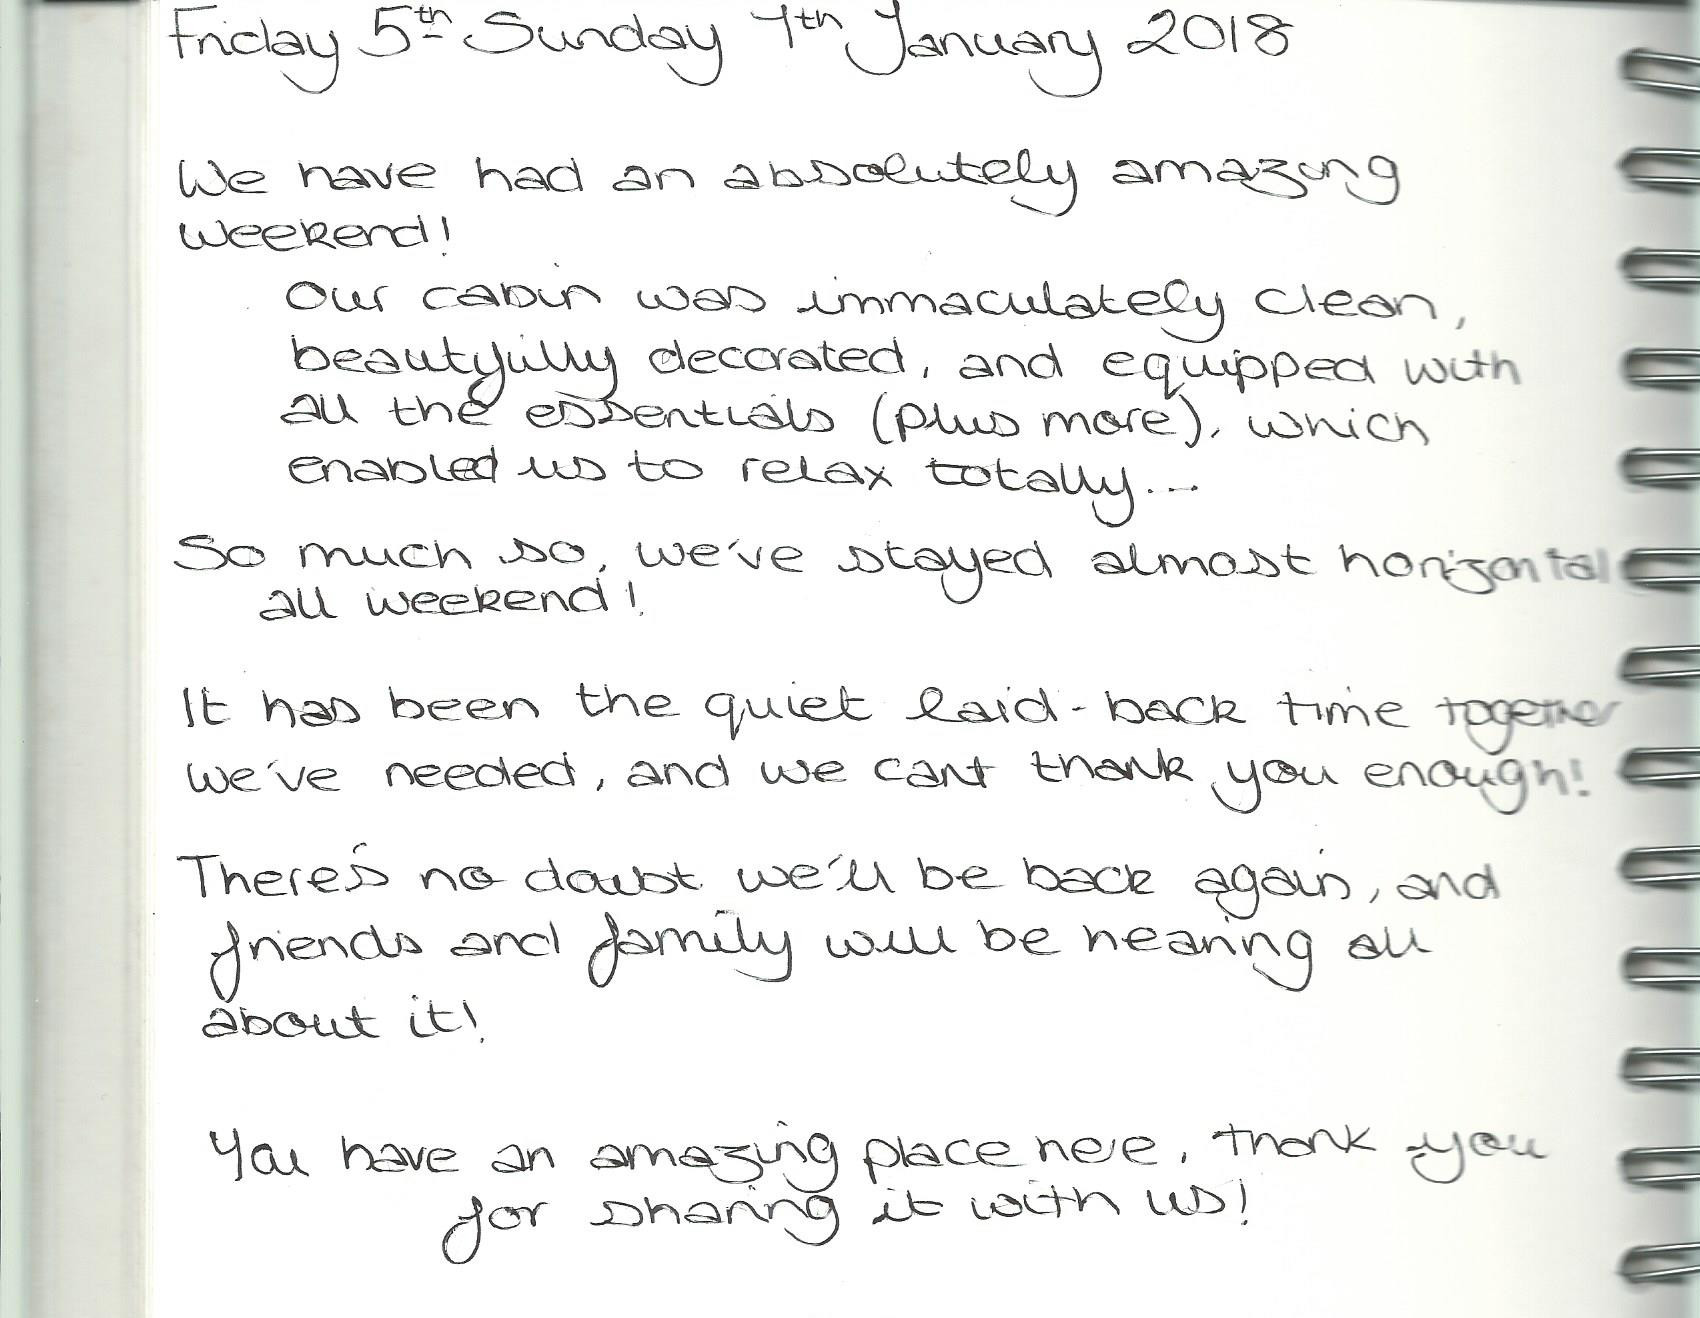 Friday 5th - Sunday 7th January 2018
We have had an absolutely amazing
weekend!
Our cabin was immaculately clean,
beautyfully decorated, and equipped with
all the essentials (plus more), which
enabled us to relax totally...
So much so, we've stayed almost horizontal
all weekend!
It has been the quiet laid-back time together
we've needed, and we cant thank you enough!
There's no doubt we'll be back again, and
friends and family will be hearing all
about it!
You have an amazing place here, thank you
for sharing it with us!